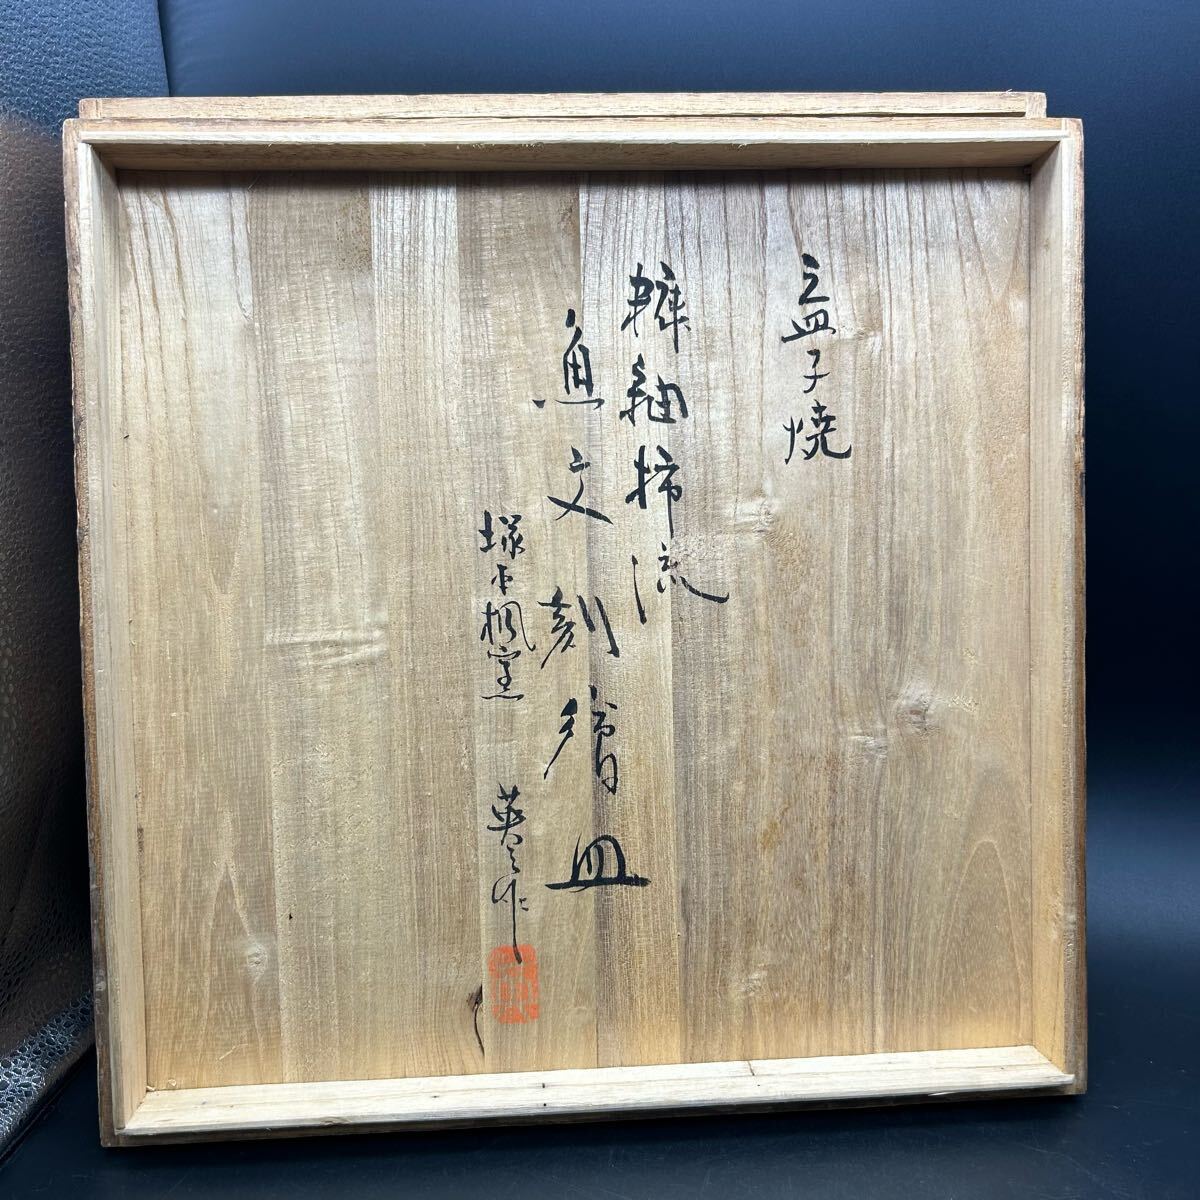 益子焼
糠釉柿流
魚文刻繪皿
塚本楓窯 英之作